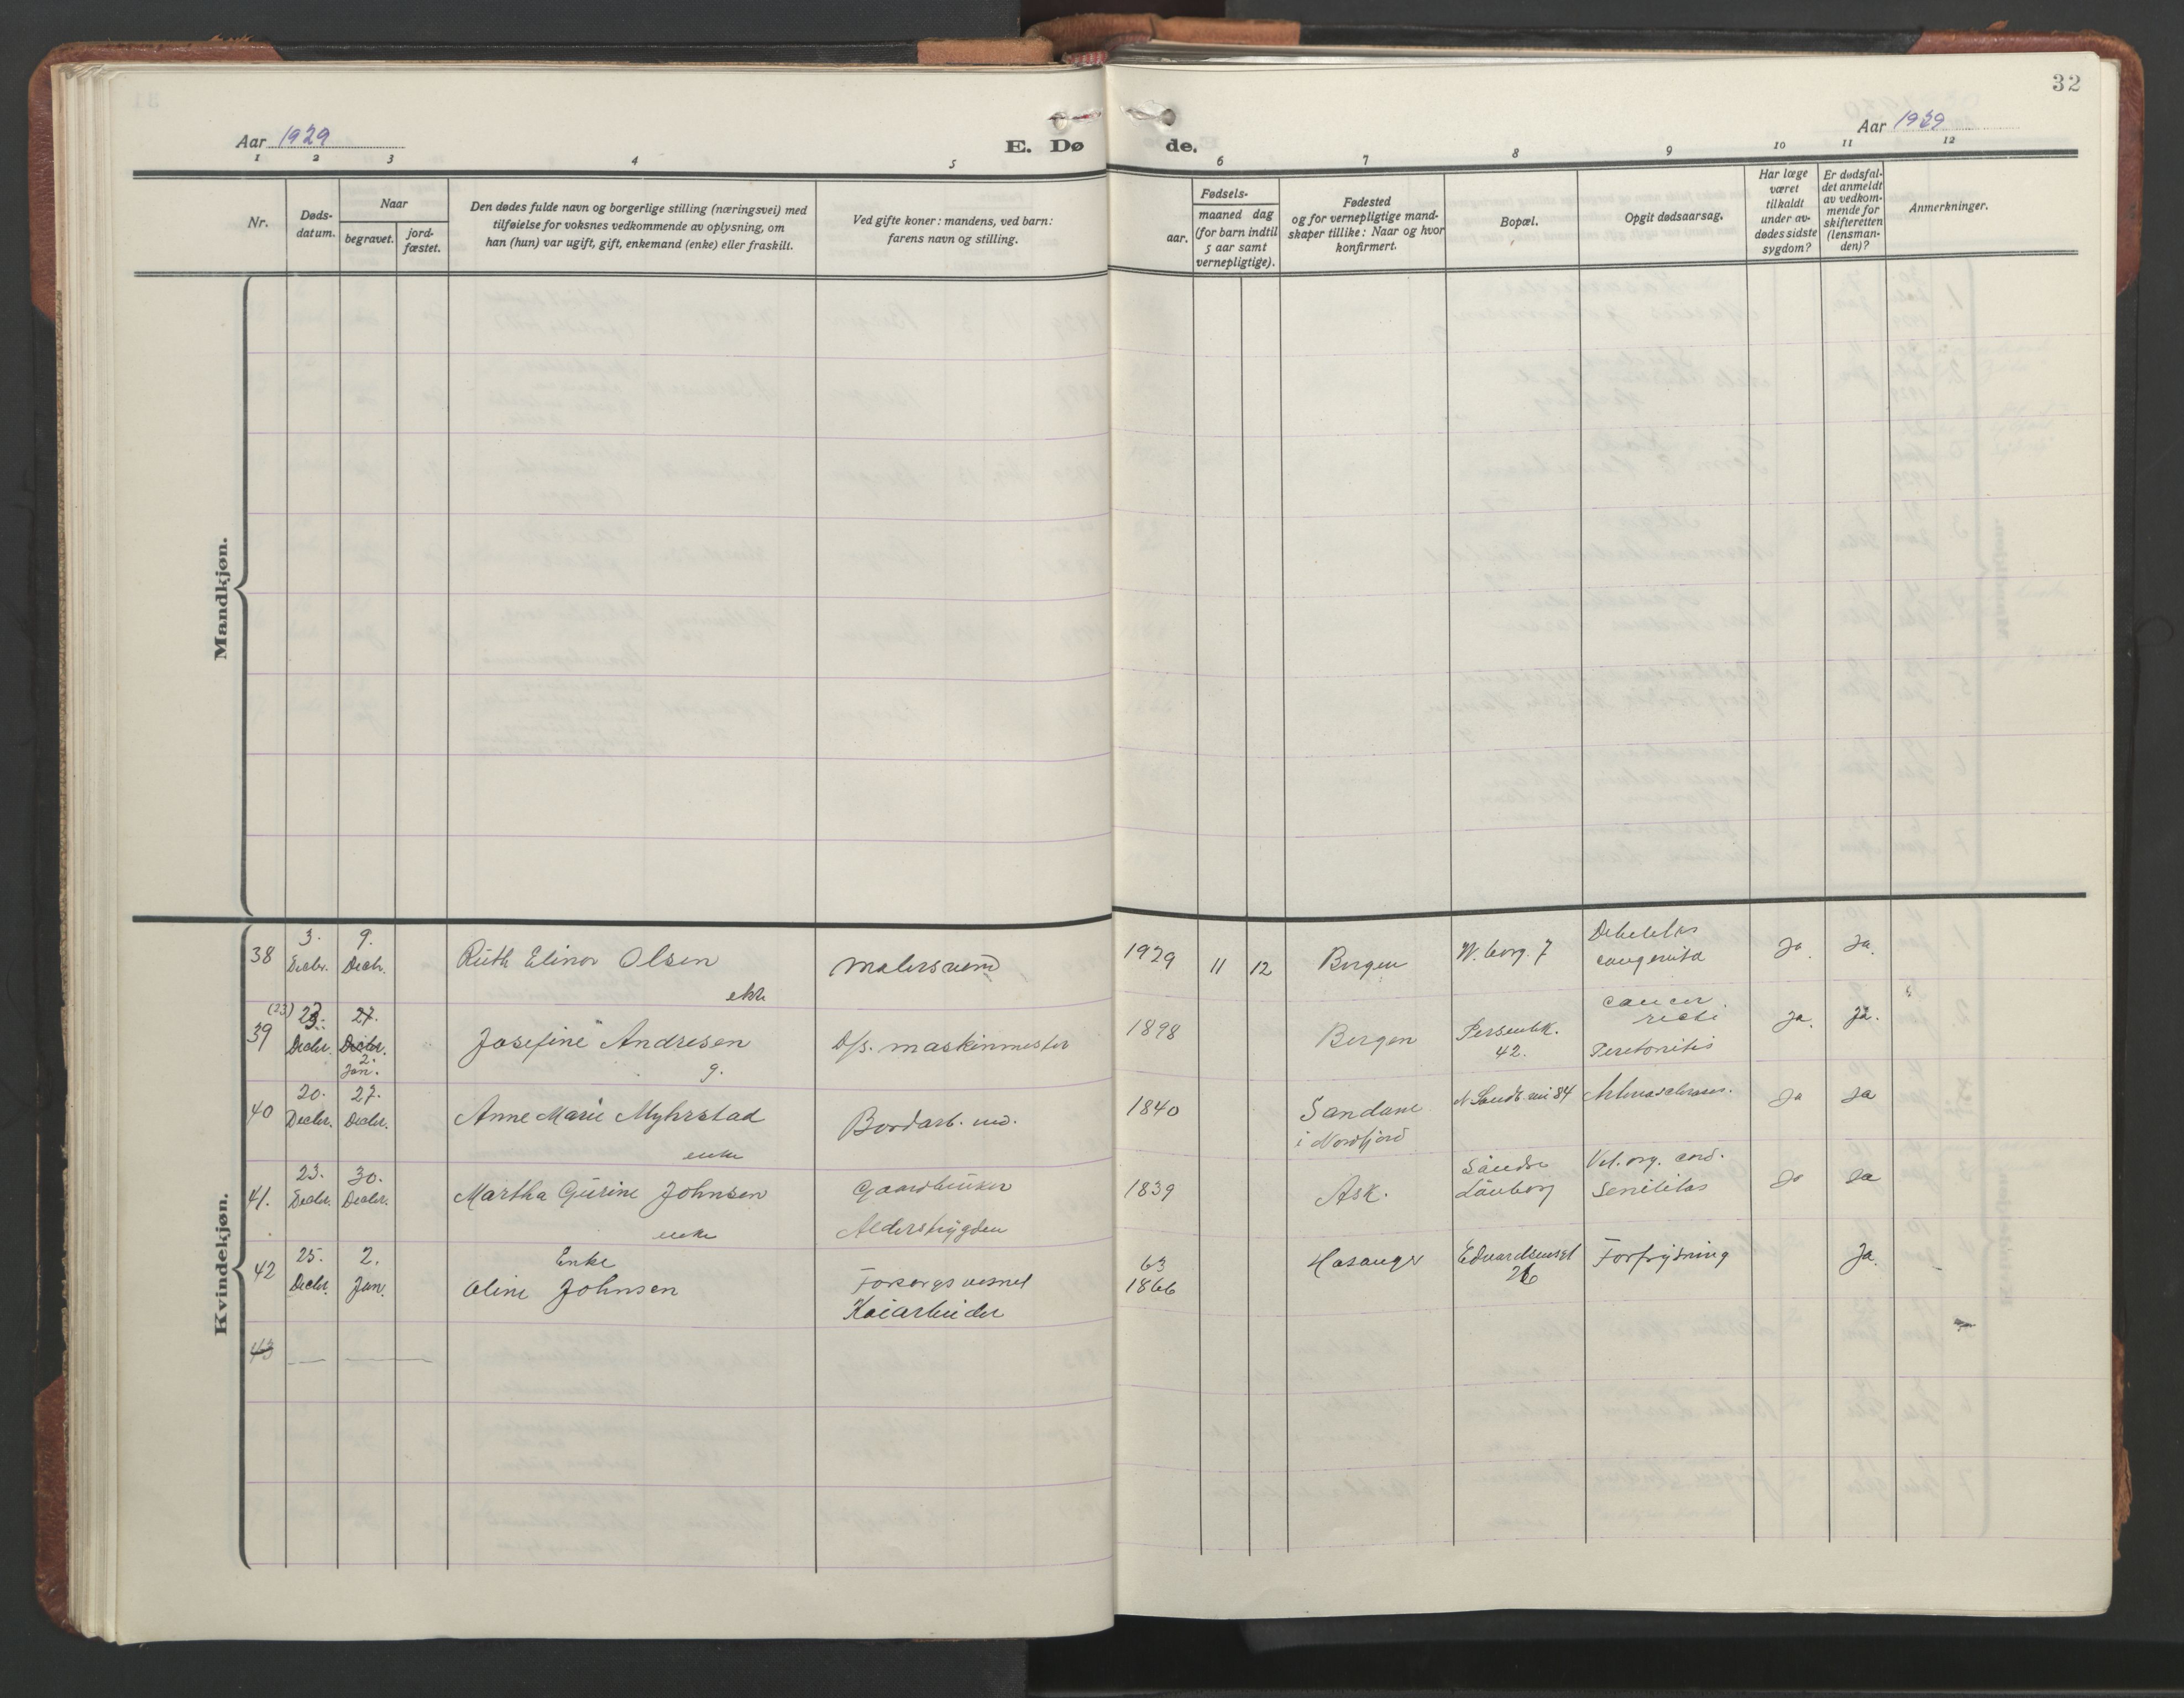 32
Aar 1929
E. Dø
de.
Aar 1929
1 2 3 4 5 6 7 8 9 10 11 12
Nr.
Døds-
datum.
Naar
begravet.
jord-
fæstet.
Den dødes fulde navn og borgerlige stilling (næringsvei) med
tilføielse for voksnes vedkommende av oplysning, om
han (hun) var ugift, gift, enkemand (enke) eller fraskilt.
Ved gifte koner: mandens, ved barn:
farens navn og stilling.
Fødsels-
aar.
maaned dag
(for barn indtil
5 aar samt
vernepligtige).
Fødested
og for vernepligtige mand-
skaper tillike: Naar og hvor
konfirmert.
Bopæl.
Opgit dødsaarsag.
Har læge
været
tilkaldt
under av-
dødes sidste
sygdom?
Er dødsfal-
det anmeldt
av vedkom-
mende for
skifteretten
(lensman-
den)?
Anmerkninger.
Mandkjøn.
Kvindekjøn.
38 3. Decbr. 9. Decbr. Ruth Elinor Olsen
ekte
Malersvend 1929 11 12 Bergen W. borg. 7
Debilitas
congenita
Ja. Ja.
39 (23) 23. Decbr. 27. Decbr.
2.
Jan.
Josefine Andresen
g.
D/s. maskinmester 1898 Bergen
42.
Cancer
recti
Peretonitis
Ja. Ja.
40 20. Decbr. 27. Decbr. Anne Marie Myhrstad
enke
Bordarb. 1840 Sandane
i Nordfjord
84
Ja Ja
41. 23. Decbr. 30. Decbr. Martha Gurine Johnsen
enke
Gaardbruker
Alderstrygden
1839 Ask.
Søndre
Vit. org. cord.
Senilitas
Ja Ja
42 25. Decbr. 2. Jan. Enke
Oline Johnsen
Forsorgsvesnet
Kaiarbeider
63
1866
Hosanger
26
Forfrysning
Ja.
43